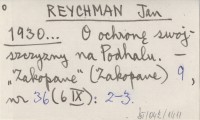 REYCHMAN Jan
1930... O ochronę swoj-
szczyzny na Podhalu. —
"Zakopane" (Zakopane) 9,
nr 36 (6 IX): 2-3.